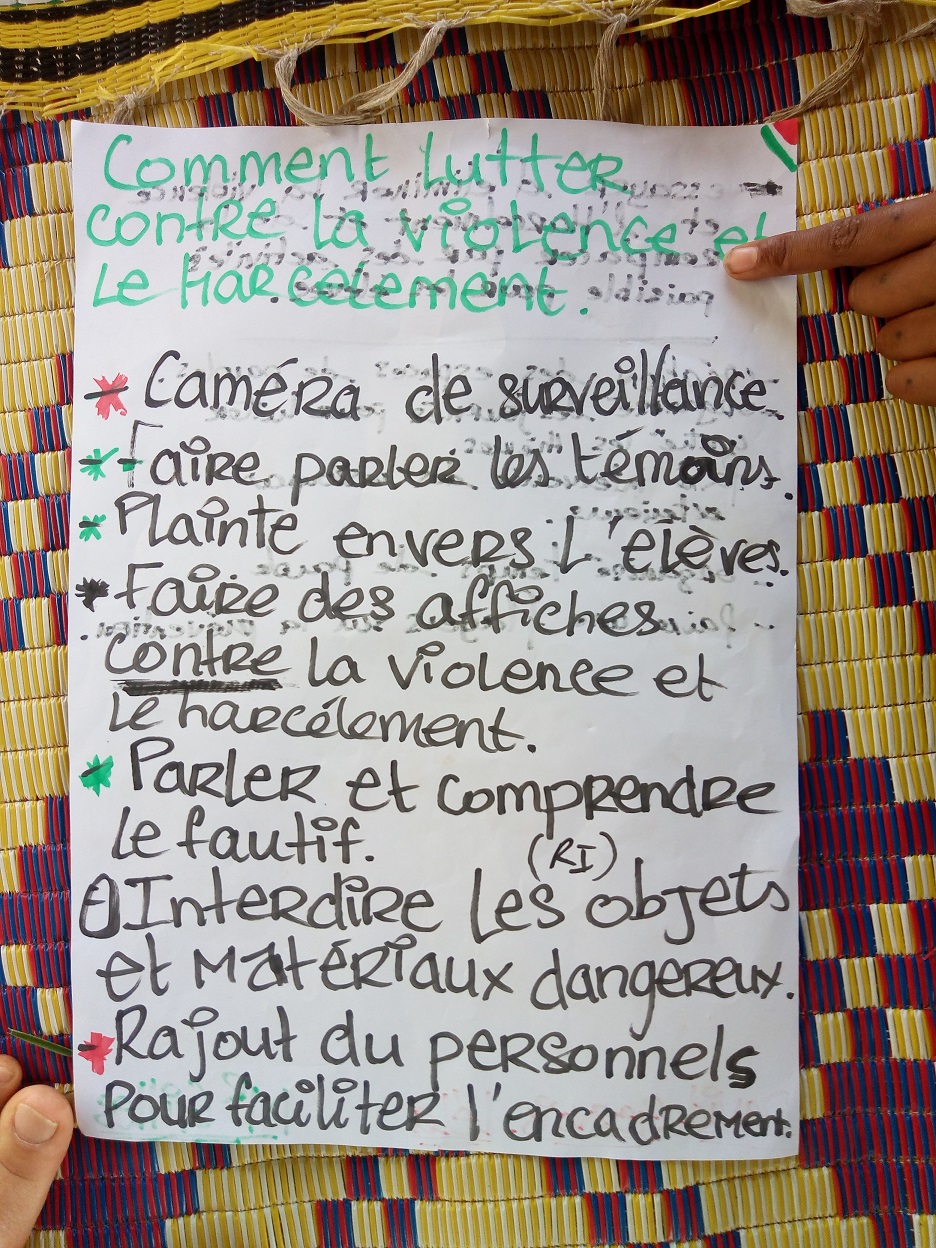 Comment lutter
contre la violence et
le Harcèlement.
Caméra de surveillance
Faire parler les témoins.
Plainte envers l'élèves.
Faire des affiches
contre la violence et
le harcélement.
Parler et comprendre
le fautif.
(RI)
Interdire les objets
et matériaux dangereux.
Rajout du personnels
pour faciliter l'encadrement.